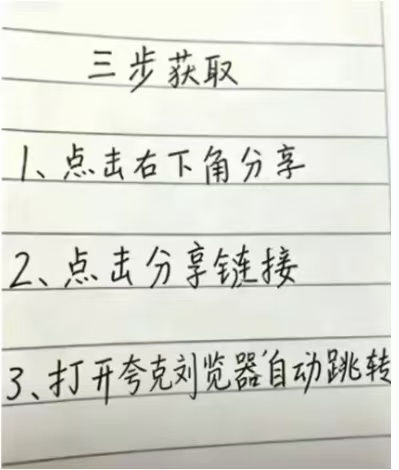 三步获取
1、点击右下角分享
2、点击分享链接
3、打开夸克刘览器自动跳转